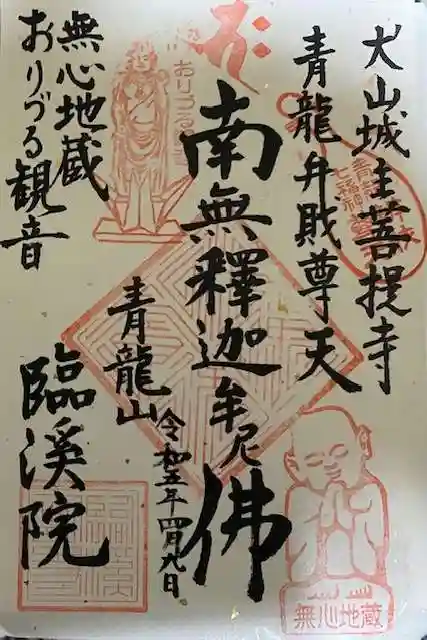 犬山城主菩提寺
青龍弁財尊天
南無釋迦牟尼佛
青龍山
令和五年四月九日
無心地蔵
おりづる観音
臨溪院
おりづる観音
無心地蔵